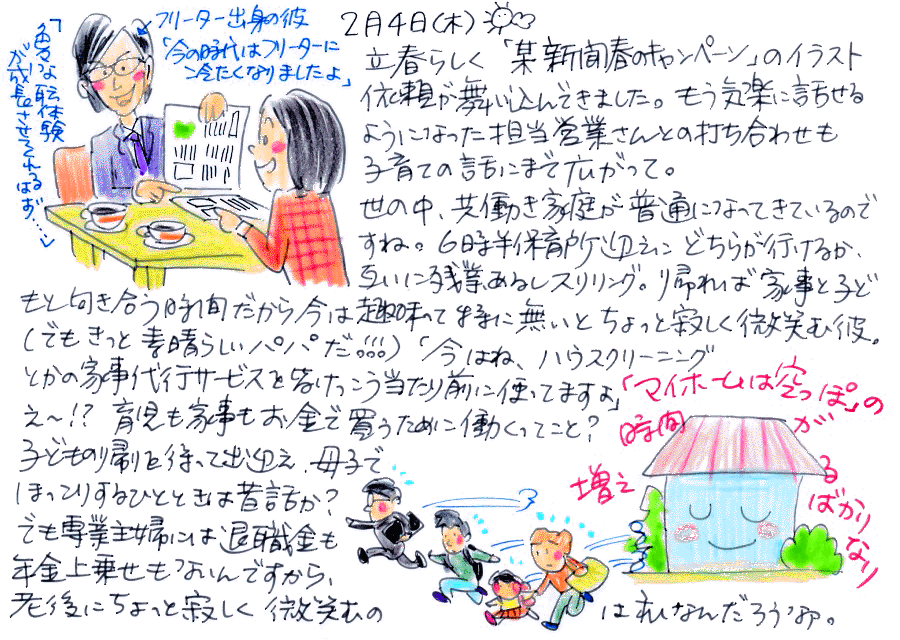 2月4日(木)
立春らしく「某新聞春のキャンペーン」のイラスト
依頼が舞い込んできました。もう気楽に話せる
ようになった担当営業さんとの打ち合わせも
子育ての話にまで広がって。
世の中、共働き家庭が普通になってきているので
すね。6時半保育所迎えにどちらが行けるか、
互いに残業あるしスリリング。帰れば家事と子ど
もと向き合う時間だから今は趣味って特に無いとちょっと寂しく微笑む彼。
(でもきっと素晴らしいパパだ!!!)「今はね、ハウスクリーニング
とかの家事代行サービスを皆けっこう当たり前に使ってますよ」
え〜!?育児も家事もお金で買うために働くってこと?
子どもの帰りを待って出迎え、母子で
ほっこりするひとときは昔話か?
でも専業主婦には退職金も
年金上乗せもないんですから、
老後にちょっと寂しく微笑むの
は私なんだろうな。
フリーター出身の彼
「今の時代はフリーターに
冷たくなりましたよ」
「色々な職体験
が成長させてくれるはず…」
「マイホームは空っぽ」の
時間が
増え
るばかりなり